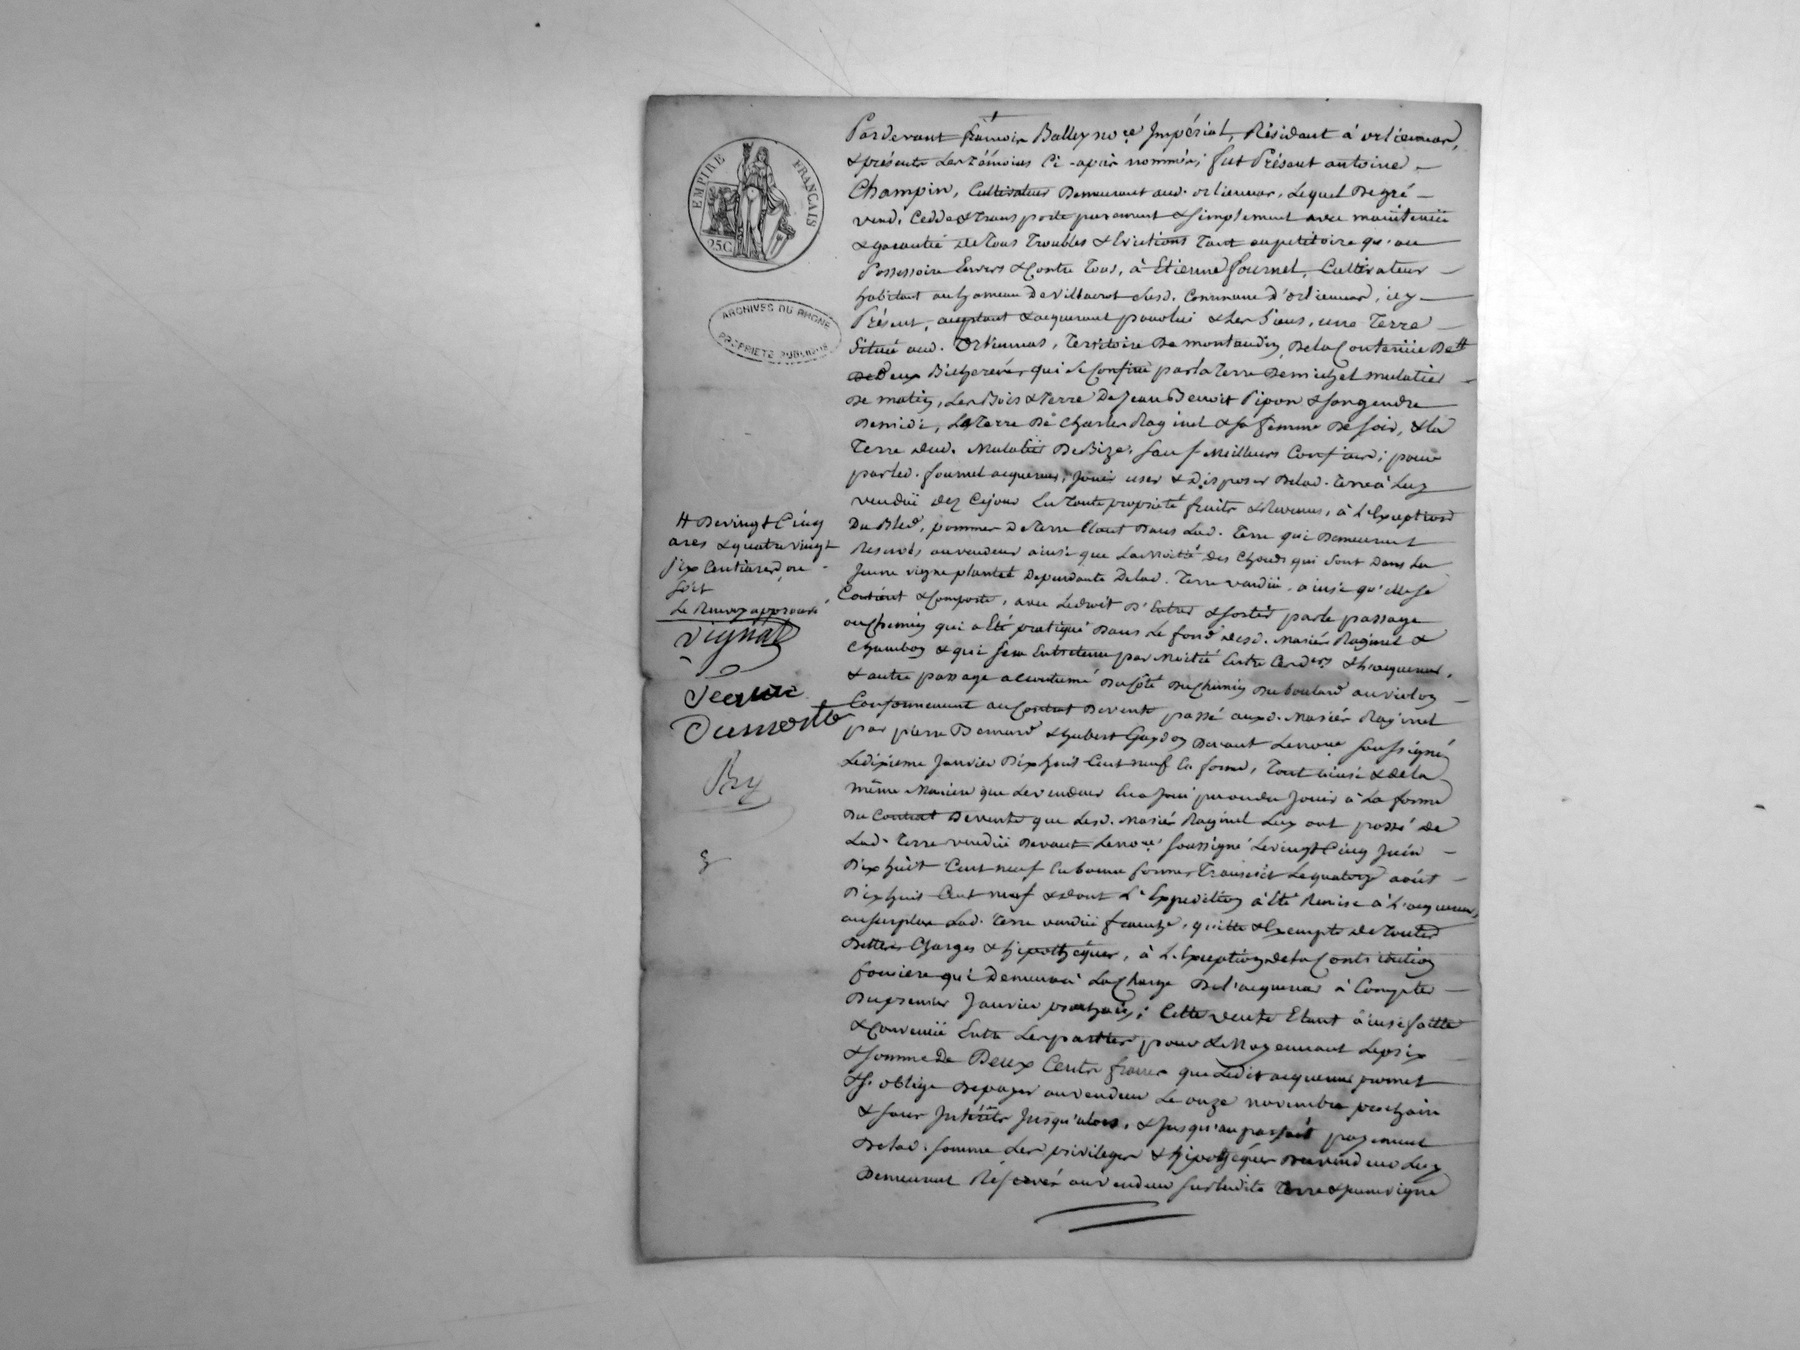 EMPIRE FRANÇAIS
25 C.
ARCHIVES DU RHONE
PROPRIETE PUBLIQUE
Pardevant françois Balley no.re Impérial, Résidant à orliennas,
& présents les témoins Ci-après nommés; fut Présent antoine
Champin, Cultivateur Demeurant aud. orliennas, Lequel De gré
vend, Cedde & transporte purement & simplement avec maintenüe
& garantie de tous troubles & Evictions tant au petitoire qu'au
Possessoire Envers & Contre tous, à Etienne fournel, Cultivateur
habitant au hameau De Villacrot susd. Commune d'orliennas, icy
Présent, acceptant & acquerant pour lui & Les Siens, une Terre
Située aud. Orliennas, Territoire De montaudin, De la Contenüe De #
Deux Bicherées qui se Confine par la Terre De michel mulatier
De matin, Les Bois & Terre De Jean Benoit Pipon & son gendre
De midi, La Terre De Charles Raginel & sa femme De soir, & la
Terre dud. Mulatier De Bize, Sauf Meilleurs Confins; pour
par led. fournel acquereur, Jouir user & Disposer De lad. Terre à Luy
vendüe dez Cejour En Toute propriété fruits & Revenus, à L'Exception
Du Bled, pommes De terre Etant Dans Lad. Terre qui Demeurent
Reservés au vendeur ainsi que La Moitié des Choux qui sont Dans La
Jeune vigne plantée Dependante De lad. Terre vendüe, ainsi qu'elle se
Contient & Comporte, avec Le droit D'Entrer & sortir par le passage
ou Chemin qui a Eté pratiqué Dans Le fond desd. Mariés Raginel &
Chambon & qui sera Entretenu par Moitié Entre Ces d.ers & L'acquereur,
& autre passage accoutumé Du Côté Du Chemin Du boulard au violon
Conformement au Contrat De vente passé auxd. Mariés Raginel
par pierre Bernard & hubert Gaydon Devant Le no.re Soussigné
Le dixieme Janvier Dix huit Cent neuf En forme, Tout ainsi & de la
même Maniere que Le vendeur En a Joui pu ou du Jouir à La forme
Du Contrat De vente que Lesd. Mariés Raginel Luy ont passé de
Lad. Terre vendüe Devant Le no.re Soussigné Le vingt Cinq Juin
Dix huit Cent neuf En bonne forme Transcrit Le quatorze août
Dix huit Cent neuf & dont L'Expedition a Eté Remise à L'acquereur,
au surplus Lad. Terre vendüe franche, quitte & Exempte de Toutes
Dettes Charges & hipothéques, à L'Exception de la Contribution
fonciere qui Demeure à La Charge De l'acquereur à Compter
Du premier Janvier prochain; Cette vente Etant ainsi faitte
& Convenüe Entre Les parties pour & Moyennant Le prix
& somme De Deux Cents francs que Ledit acquereur promet
& s'oblige De payer au vendeur Le onze novembre prochain
& sans Intérêts Jusqu'alors, & Jusqu'au parfait payement
De lad. somme Les privileges & hipothéques Du vendeur Luy
Demeurent Réservés au vendeur sur ladite Terre & Jeune vigne
# De vingt Cinq
ares & quatre vingt
six Centiares, ou
soit
Le Renvoy approuvé
Vignat
Dumortier
Bry